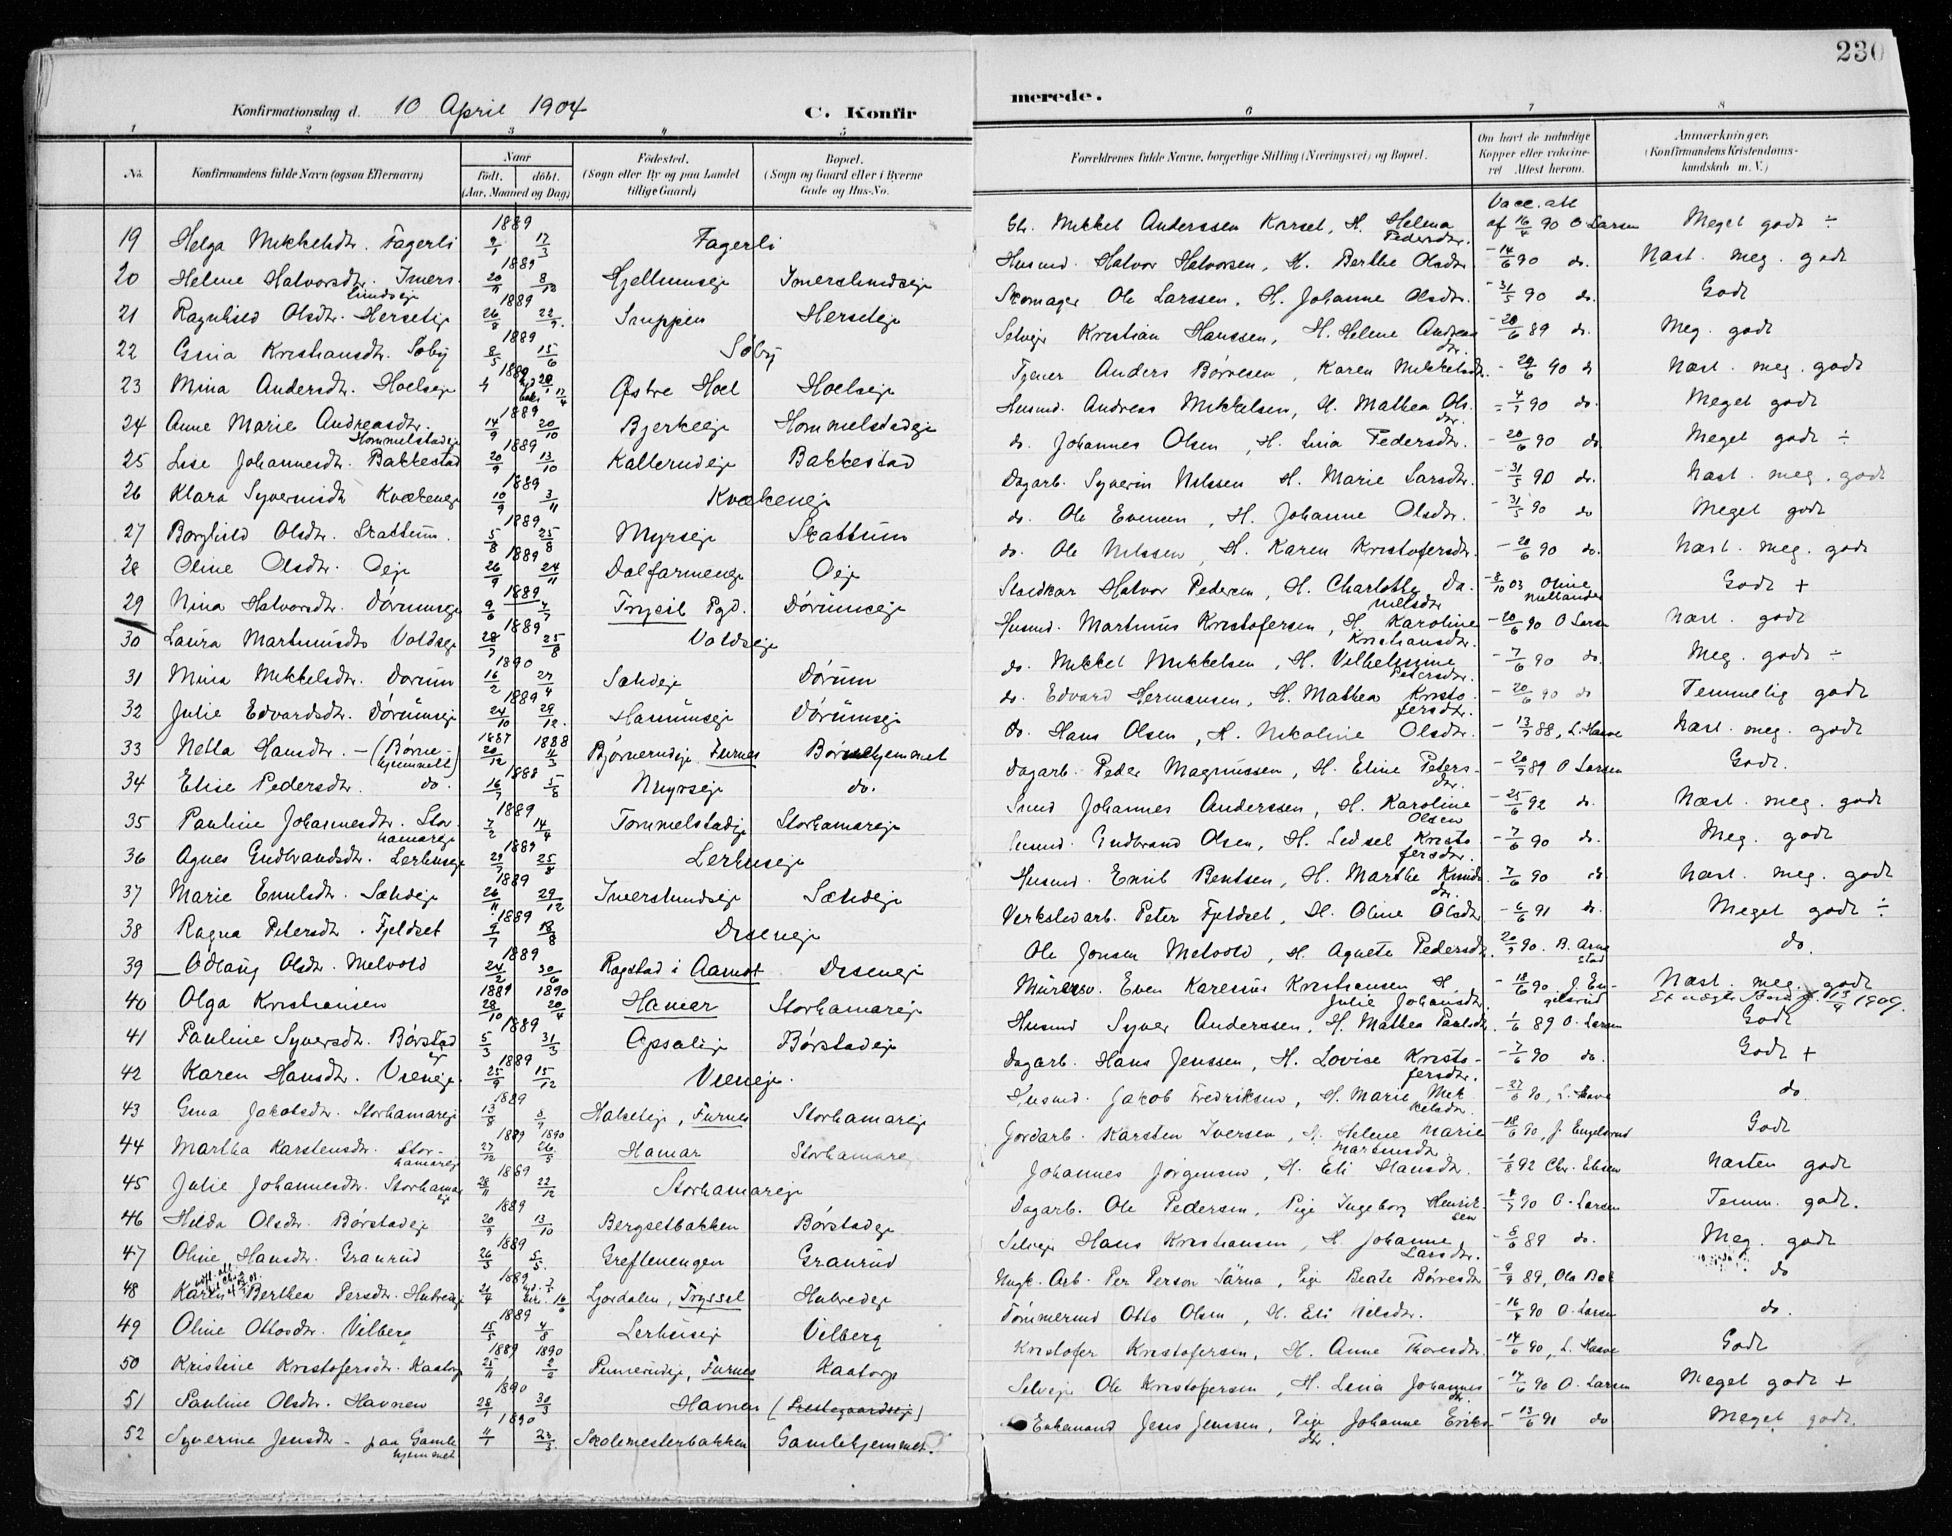 230
Konfirmationsdag d. 10 April 1904 C. Konfir merede.
1 2 3 4 5 6 7 8
No. Konfirmandens fulde Navn (ogsaa Efternavn) Naar født. døbt. (Aar, Maaned og Dag) Fødested. (Sogn eller By og paa Landet tillige Gaard) Bopæl. (Sogn og Gaard eller i Byerne Gade og Hus-No. Forældrenes fulde Navne, borgerlige Stilling (Næringsvei) og Bopæl. Om havt de naturlige Kopper eller vaccineret Attest herom. Anmærkninger. (Konfirmandens Kristendomskundskab m. V.)
19 Helga Mikkelsdtr. Fagerli 1889 17/3 Fagerli Mikkel Anderssen H. Helena Pedersdtr. Vacc. att af 16/4 90 O Larsen Meget godt ÷
20 Helene Halvorsdtr. Imerslundseje 1889 Hjellumseje Imerslundseje Husmd. Halvor Halvorsen, H. Berthe Olsdtr. 14/6 90 do. Næst. meg. godt
21 Ragnhild Olsdtr. Herseteje 1889 Herseteje Skomager Ole Larssen, H. Johanne Olsdtr. 31/5 90 do. Godt
22 Gina Kristiansdtr. Søby 1889 8/5 15/6 Søby Selvejer Kristian Hanssen, H. Helene Andreasdtr. 20/6 89 do. Meg. godt
23 Mina Andersdtr. Hoelseje 1889 Østre Hoel Hoelseje Tjener Anders Børresen, Karen Mikkelsdtr. 20/6 90 do Næst. meg. godt
24 Anne Marie Andreasdtr. Hommelstadeje 1889 14/9 20/10 Bjerkeeje Hommelstadeje Husmd. Andreas Mikkelsen, H. Mathea Olsdtr. 90 do. Meget godt
25 Lise Johannesdtr. Bakkestad 1889 20/9 13/10 Kallerudeje Bakkestad do. Johannes Olsen, H. Lina Pedersdtr. 20/6 90 do. Meget godt ÷
26 Klara Syverinsdtr Kvækeneje 1889 10/9 3/11 Kvækeneje Dagarb. Syverin Nilssen H. Marie Larsdtr. 31/5 90 do. Næst. meg. godt
27 Borghild Olsdtr. Skattum. 1889 5/8 25/8 Myrseje Skattum do. Ole Evensen, H. Johanne Olsdtr. 31/5 90 do Meget godt
28 Oline Olsdtr. Oeje 1889 26/9 24/11 Dalfarmeneje Oeje do. Ole Nilssen, H. Karen Kristofersdtr. 20/6 90 do. Næst. meg. godt
29 Nina Halvorsdtr. Dørumseje 1889 9/6 7/7 Trysil Pgd. Dørumseje Halvor Pedersen, H. Charlotte Nilsdtr 8/10 03 Oline Godt +
30 Laura Martinusdtr Voldseje 1889 28/7 25/8 Voldseje Husmd. Martinus Kristofersen, H. Karoline Kristiansdtr. 20/6 90 O Larsen Næst. godt
31 Mina Mikkelsdtr. Dørum 1890 16/2 27/4 Dørum do. Mikkel Mikkelsen, H. Vilhelmine Petersdtr. 7/6 90 do. Meg. godt ÷
32 Julie Edvardsdtr. Dørumseje 1889 24/10 29/12. Dørumseje do. Edvard Hermansen, H. Mathea Kristofersdtr. 20/6 90 do Temmelig godt
33 Netta Hansdtr. - (Børnehjemmet) 1887 20/12 1888 11/3 Bjørnerudeje Furnes Børnehjemmet do. Hans Olsen, H. Nikoline Olsdtr. 13/7 88, L. Hasve Næst. meg. godt
34 Elise Pedersdtr. do. 1888 16/7 5/8 Myrseje do. Dagarb. Peder Magnussen, H. Eline Petersdtr. 20/7 89 O Larsen Godt.
35 Pauline Johannesdtr. Storhamareje 1889 7/2 14/4 Tommelstadeje Storhamareje Smed Johannes Anderssen, H. Karoline Olsen 25/6 92 do. Næst. meg. godt
36 Agnes Gudbrandsdtr. Lerhuseje 1889 25/8 Lerhuseje Husmd. Gudbrand Olsen, H. Sidsel Kristofersdtr. 7/6 90 do. Meg. godt
37 Marie Emilsdtr. Sælideje 1889 26/11 29/12 Imerslundseje Sælideje Husmd. Emil Bentsen, H. Marthe Knudsdtr. 7/6 90 do Næst. meg. godt
38 Ragna Petersdtr. Fjeldset 1889 9/7 18/8 Diseneje Verkstedarb. Peter Fjeldset, H. Oline Olsdtr 6/6 91 do. Meget godt ÷
39 Odlaug Olsdtr. Melvold 1889 24/2 30/6 Rogstad i Aamot Diseneje Ole Jonsen Melvold, H. Agnete Pedersdtr. 20/7 90. B. Arnestad do.
40 Olga Kristiansen 1889 28/10 1890 20/4 Hamar Storhamareje Murersv. Even Karenius Kristiansen H. Julie Johansdtr. 18/6 90. J. Engelsrud Næst. meg. godt 13/4 1909.
41 Pauline Syversdtr. Børstadeje 1889 5/3 31/3 Opsaleje Børstadeje Husmd Syver Anderssen, H. Mathea Paulsdtr. 1/6 89 O. Larsen Godt
42 Karen Hansdtr. Vieneje. 1889 25/9 15/12 Vieneje. Dagarb. Hans Jenssen, H. Lovise Kristofersdtr. 7/6 90 do. Godt +
43 Gina Jakobsdtr. Storhamareje 1889 13/8 Halseteje, Furnes Storhamareje Husmd. Jakob Fredriksen, H. Marie Mikkelsdtr. 27/6 90, L. Hasve do
44 Martha Karstensdtr. Storhamareje 1889 27/12 1890 26/5 Hamar Storhamareje Gordarb. Karsten Iversen, H. Helene Marie Martinsdtr 18/6 90, J. Engelsrud Godt
45 Julie Johannesdtr. Storhamareje 1889 28/11 22/12 Storhamareje Johannes Jørgensen, H. Eli Hansdtr. 1/8 92 Chr. Ebsen Næsten godt
46 Hilda Olsdtr. Børstadeje 1889 20/9 13/10 Bergsetbakken Børstadeje Dagarb. Ole Pedersen, Pige Ingeborg Henriksen 90 O. Larsen Temm. godt.
47 Oline Hansdtr. Granrud 1889 26/3 5/5. Greftenengen Granrud Selvejer Hans Kristiansen, H. Johanne Larsdtr. 8/6 89 do. Meg. godt
48 Karen Berthea Persdtr. Hubredeje 1889 Ljørdalen, Trysil Hubredeje Ungk. Arb. Per Person Särna, Pige Beate Børresdtr 9/9 89, Ola Bak do
49 Oline Ottosdtr. Vilberg 1889 15/5 4/8 Lerhuseje Vilberg Tømmermd Otto Olsen, H. Eli Nilsdtr. 90 O. Larsen do.
50 Kristine Kristofersdtr. Kaatorp 1889 25/11 1890 2/2 Furnes Kaatorp Kristofer Kristofersen, H. Anne Thoresdtr. 14/6 90, L. Hasve Godt
51 Pauline Olsdtr. Havnen 1890 28/1 30/3 Havnen (Prestegaardseje) Selvejer Ole Kristofersen, H. Lina Johannesdtr. 14/6 90 O. Larsen Meget godt +
52 Syverine Jensdtr - paa Gamlehjemmet 1890 23/3 Skolemesterbakken Gamlehjemmet. Enkemand Jens Jenssen, Pige Johanne Eriksdtr. 13/6 91 do Meget godt.